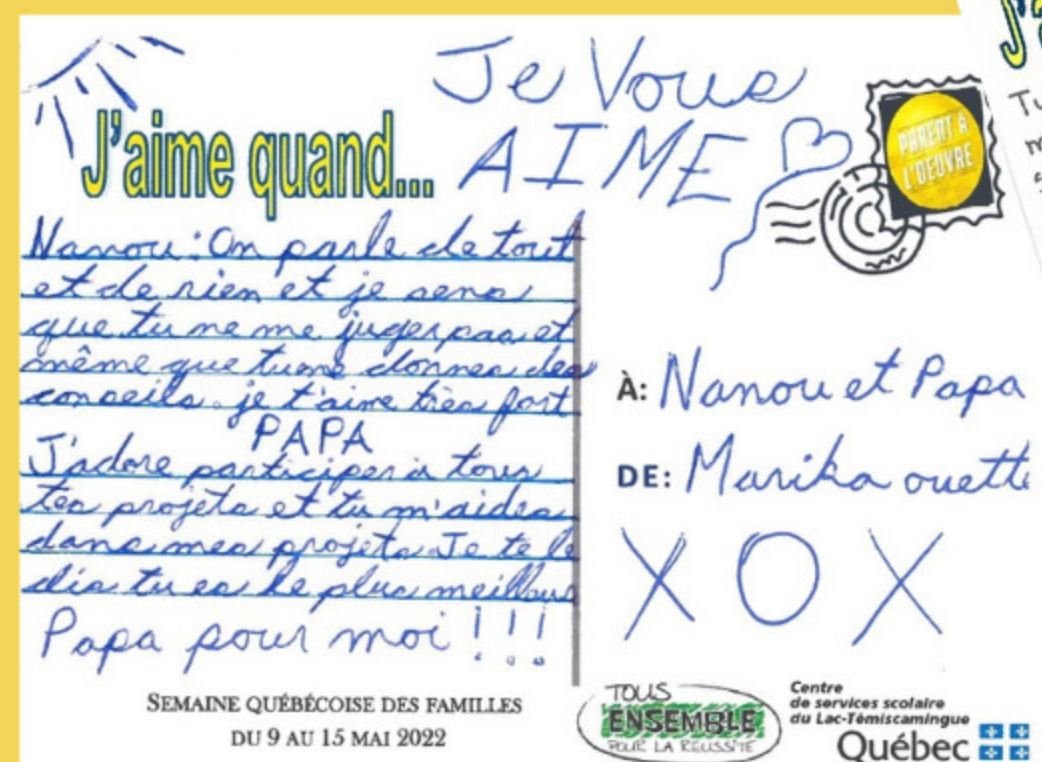 Je Vous
AIME
J'aime quand...
PARENT À
L'OEUVRE
Nanou : On parle de tout
et de rien et je sens
que tu ne me juges pas et
même que tu me donnes des
conseils. je t'aime très fort
PAPA
J'adore participer à tous
tes projets et tu m'aides
dans mes projets. Je te le
dis tu es le plus meilleur
Papa pour moi !!!
À: Nanou et Papa
DE: Marika ouelle
X O X
SEMAINE QUÉBÉCOISE DES FAMILLES
DU 9 AU 15 MAI 2022
TOUS
ENSEMBLE
POUR LA RÉUSSITE
Centre
de services scolaire
du Lac-Témiscamingue
Québec
J'a
Tu